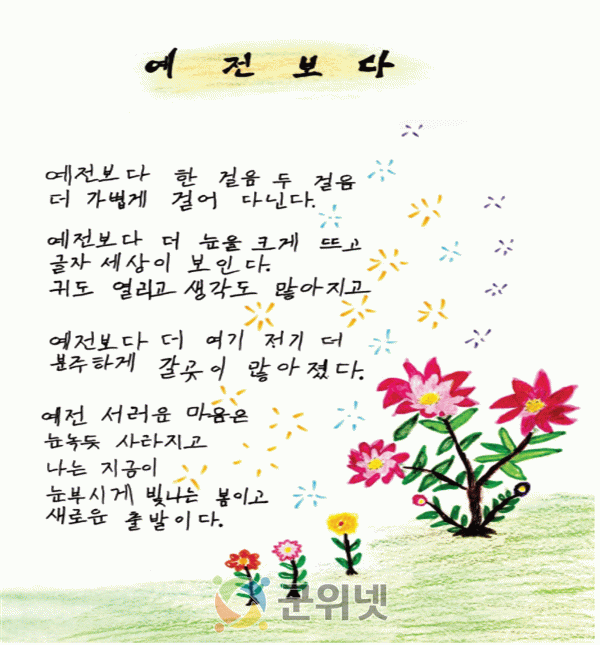 예전보다
예전보다 한 걸음 두 걸음
더 가볍게 걸어 다닌다.
예전보다 더 눈을 크게 뜨고
글자 세상이 보인다.
귀도 열리고 생각도 많아지고
예전보다 더 여기 저기 더
분주하게 갈곳이 많아졌다.
예전 서러운 마음은
눈녹듯 사라지고
나는 지금이
눈부시게 빛나는 봄이고
새로운 출발이다.
군위넷